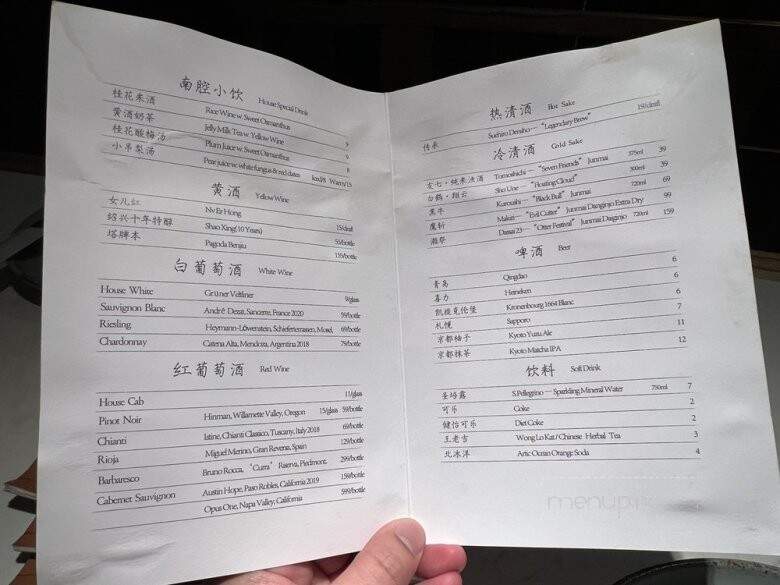 南腔小饮 House Special Drink
桂花米酒 Rice Wine w. Sweet Osmanthus 9
黄酒奶茶 Jelly Milk Tea w. Yellow Wine 9
桂花酸梅汤 Plum Juice w. Sweet Osmanthus 8
小吊梨汤 Pear juice w. white fungus & red dates Iced/8 Warm/15
黄酒 Yellow Wine
女儿红 Nv Er Hong 15/draft
绍兴十年特醇 Shao Xing (10 Years) 55/bottle
塔牌本 Pagoda Benjiu 155/bottle
白葡萄酒 White Wine
House White Grüner Veltliner 9/glass
Sauvignon Blanc André Dezat, Sancerre, France 2020 59/bottle
Riesling Heymann-Löwenstein, Schieferterrassen, Mosel, 69/bottle
Chardonnay Catena Alta, Mendoza, Argentina 2018 79/bottle
红葡萄酒 Red Wine
House Cab 11/glass
Pinot Noir Hinman, Willamette Valley, Oregon 15/glass 59/bottle
Chianti Istine, Chianti Classico, Tuscany, Italy 2018 69/bottle
Rioja Miguel Merino, Gran Reverva, Spain 129/bottle
Barbaresco Bruno Rocca, "Curra" Riserva, Piedmont, 299/bottle
Cabernet Sauvignon Austin Hope, Paso Robles, California 2019 159/bottle
Opus One, Napa Valley, California 599/bottle
热清酒 Hot Sake
传承 Suehiro Densho — "Legendary Brew" 15/draft
冷清酒 Cold Sake
友七·纯米浊酒 Tomoshichi — "Seven Friends" Junmai 375ml 39
白鹤·翔云 Sho Une — "Floating Cloud" 300ml 39
黑牛 Kuroushi — "Black Bull" Junmai 720ml 69
魔斩 Makiri — "Evil Cutter" Junmai Danginjo Extra Dry 99
獭祭 Dassai 23 — "Otter Festival" Junmai Daiginjo 720ml 159
啤酒 Beer
青岛 Qingdao 6
喜力 Heineken 6
凯旋克伦堡 Kronenbourg 1664 Blanc 6
札幌 Sapporo 7
京都柚子 Kyoto Yuzu Ale 11
京都抹茶 Kyoto Matcha IPA 12
饮料 Soft Drink
圣培露 S.Pellegrino — Sparkling Mineral Water 750ml 7
可乐 Coke 2
健怡可乐 Diet Coke 2
王老吉 Wong Lo Kat / Chinese Herbal Tea 3
北冰洋 Artic Ocean Orange Soda 4